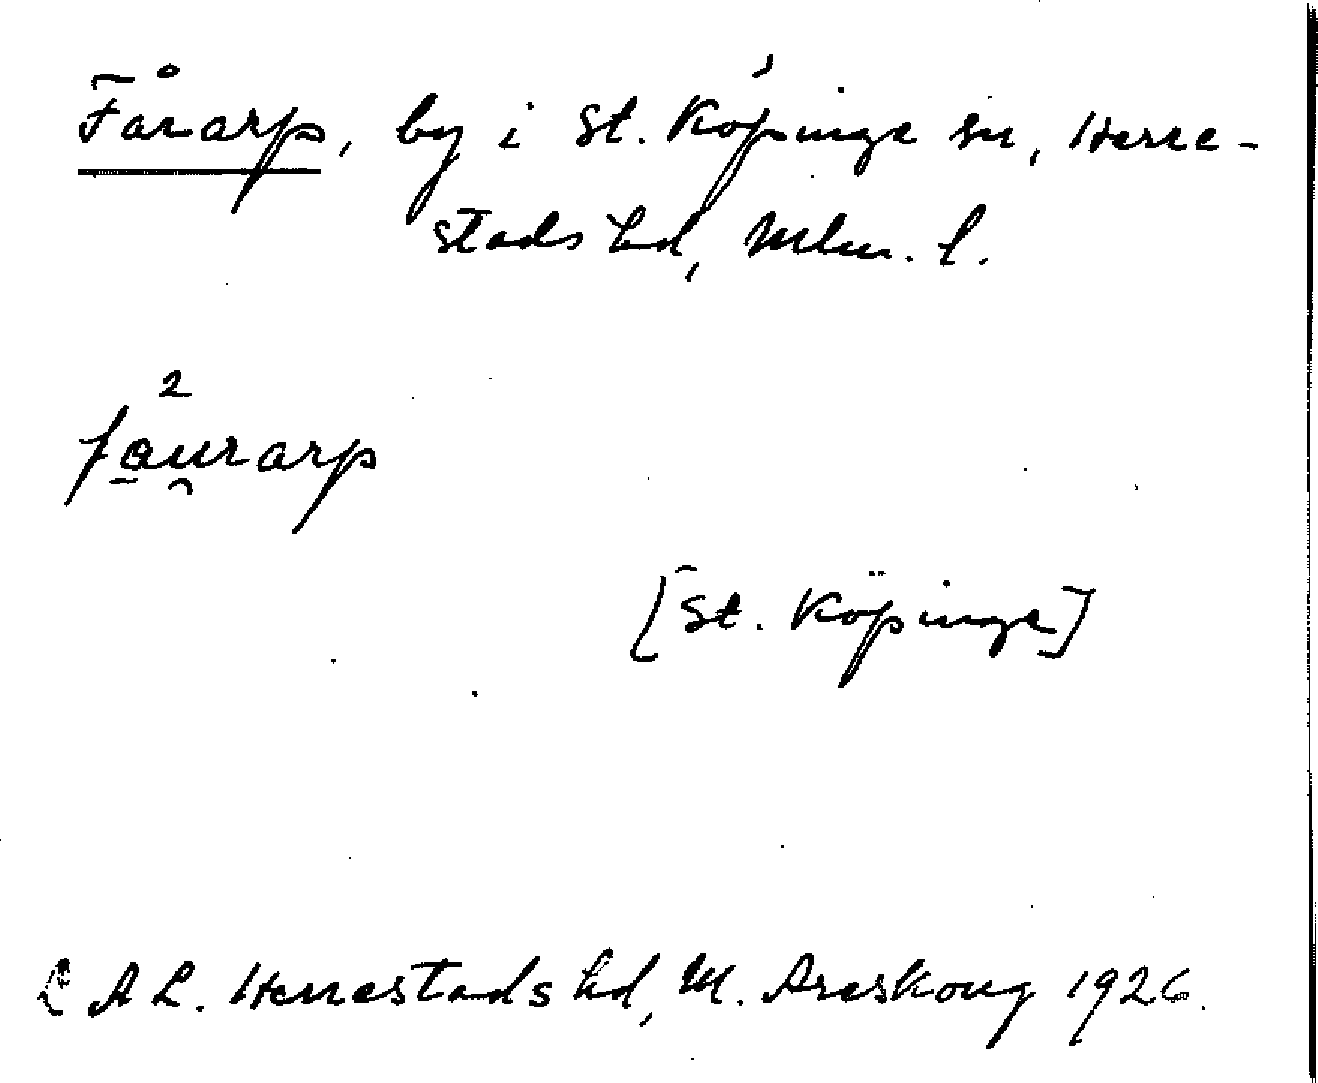 Fårarp, by i St. Köpinge sn, Herre-
stads hd, Mlm. l.
2
fau̯rarp
[St. Köpinge]
L A L. Herrestads hd, M. Areskoug 1926.